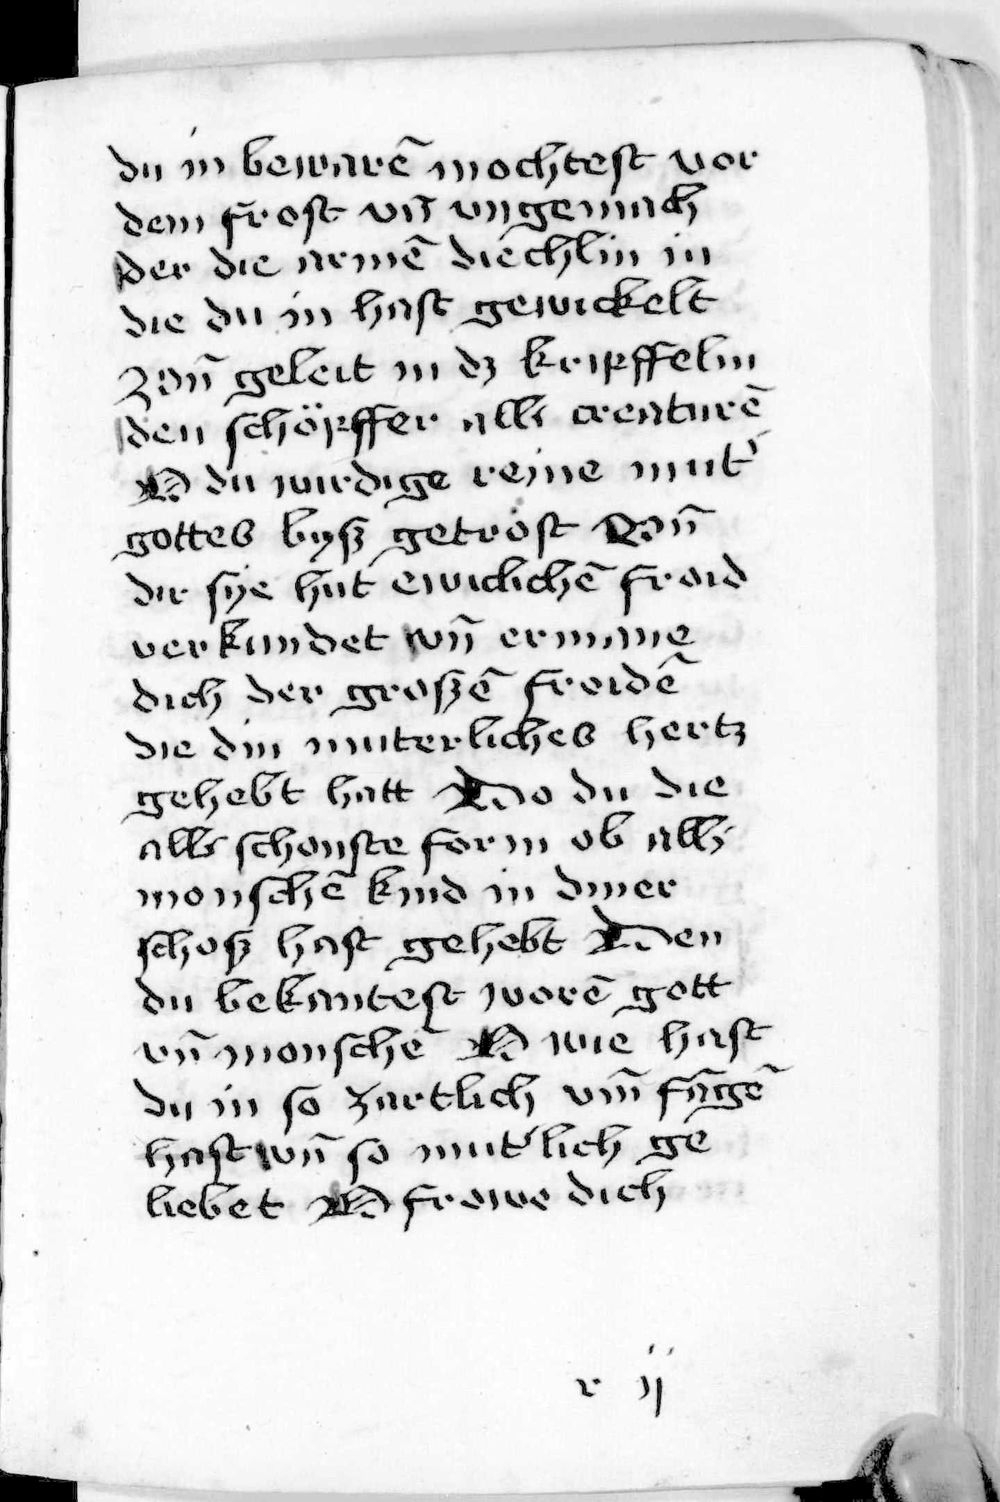 du in bewarē mochtest vor
dem frost vn̄ vngemach
der die armē diechlin in
die du in hast gewickelt
Vn̄ geleit in dz kripffelin
den schöpffer all' creaturē
O du wirdige reine mut'
gottes byſz getröst Wān
dir sÿe hüt ewiclichē froid
verkundet vn̄ ermane
dich der groszē froidē
die din muterliches hertz
gehebt hatt Do du die
all' schonste form ob all'
monschē kind in diner
schosz hast gehebt Den
du bekantest worē gott
vn̄ monschē O wie hast
du in so zartlich vm̄ fāgē
hast vn̄ so mut'lich ge
liebet O frowe dich
r ij